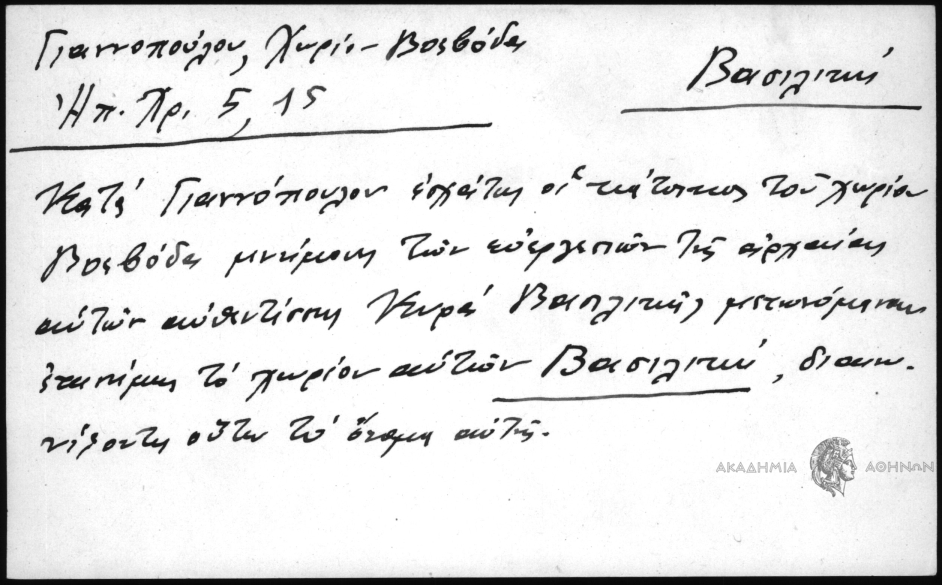 Γιαννοπούλου, Χωρίο - Βοεβόδα
Βασιλική
Ἠπ. Χρ. 5, 15
Κατά Γιαννόπουλον ἐσχάτως οἱ κάτοικοι τοῦ χωρίου
Βοεβόδα μνήμονες τῶν εὐεργεσιῶν τῆς ἀρχαίας
αὐτῶν αὐθεντίσσης Κυρά Βασιλικῆς μετωνόμασαν
ἐπισήμως τό χωρίον αὐτῶν Βασιλική, διαιω-
νίζοντες οὕτω τό ὄνομα αὐτῆς.
ΑΚΑΔΗΜΙΑ ΑΘΗΝΩΝ